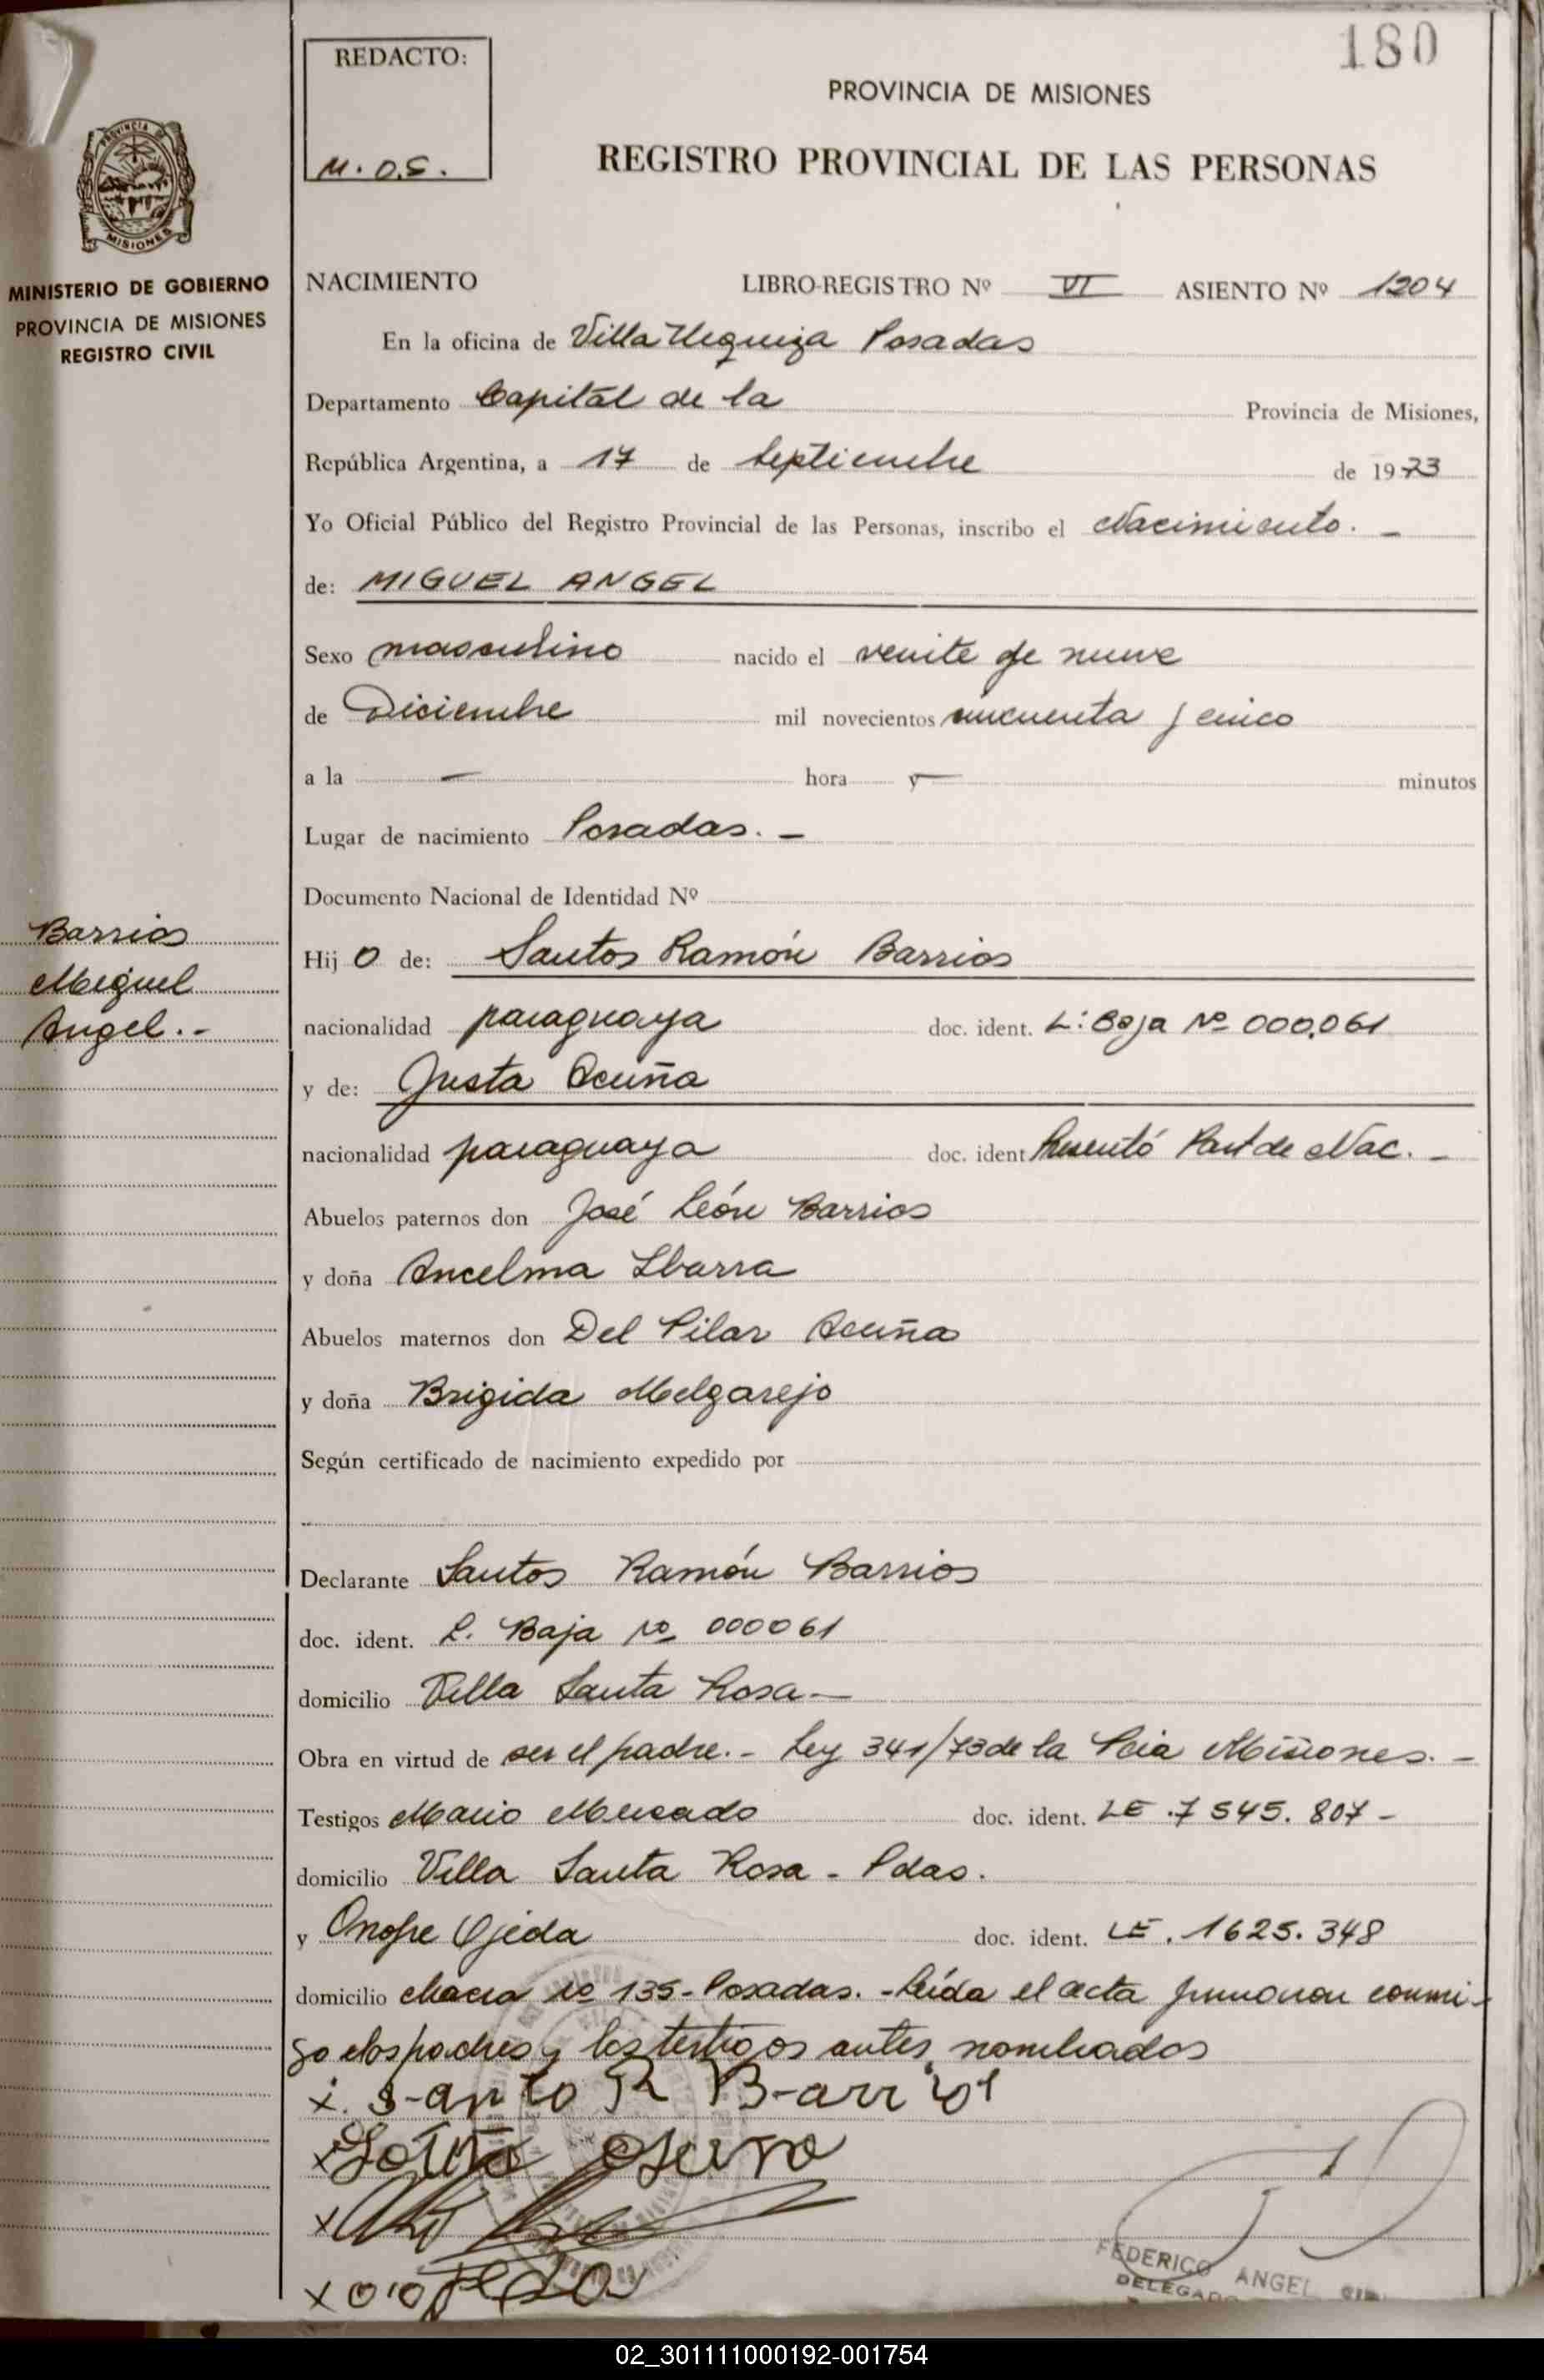 180
REDACTO:
M.O.S.
PROVINCIA DE MISIONES
REGISTRO PROVINCIAL DE LAS PERSONAS
MISIONES
MINISTERIO DE GOBIERNO
PROVINCIA DE MISIONES
REGISTRO CIVIL
NACIMIENTO LIBRO-REGISTRO Nº VI ASIENTO Nº 1204
En la oficina de Villa Urquiza Posadas
Departamento Capital de la Provincia de Misiones,
República Argentina, a 17 de Septiembre de 1973
Yo Oficial Público del Registro Provincial de las Personas, inscribo el Nacimiento. -
de: MIGUEL ANGEL
Sexo masculino nacido el veinte de nueve
de Diciembre mil novecientos cincuenta y cinco
a la — hora y — minutos
Lugar de nacimiento Posadas. -
Documento Nacional de Identidad Nº
Barrios
Miguel
Angel.-
Hijo de: Santos Ramón Barrios
nacionalidad paraguaya doc. ident. L: Baja Nº 000.061
y de: Justa Acuña
nacionalidad paraguaya doc. ident Presentó Part de Nac. -
Abuelos paternos don José León Barrios
y doña Ancelma Ibarra
Abuelos maternos don Del Pilar Acuña
y doña Brigida Melgarejo
Según certificado de nacimiento expedido por
Declarante Santos Ramón Barrios
doc. ident. L. Baja Nº 000061
domicilio Villa Santa Rosa -
Obra en virtud de ser el padre. - Ley 341/73 de la Pcia Misiones. -
Testigos Mario Mercado doc. ident. LE. 7 545. 807 -
domicilio Villa Santa Rosa - Pdas.
y Onofre Ojeda doc. ident. LE. 1625. 348
domicilio Chacra Nº 135 - Posadas. - Leída el acta firmaron conmi-
go los padres y los testigos antes nombrados
x. S-anto R B-arrios
x
x
x
FEDERICO ANGEL
DELEGADO
02_301111000192-001754